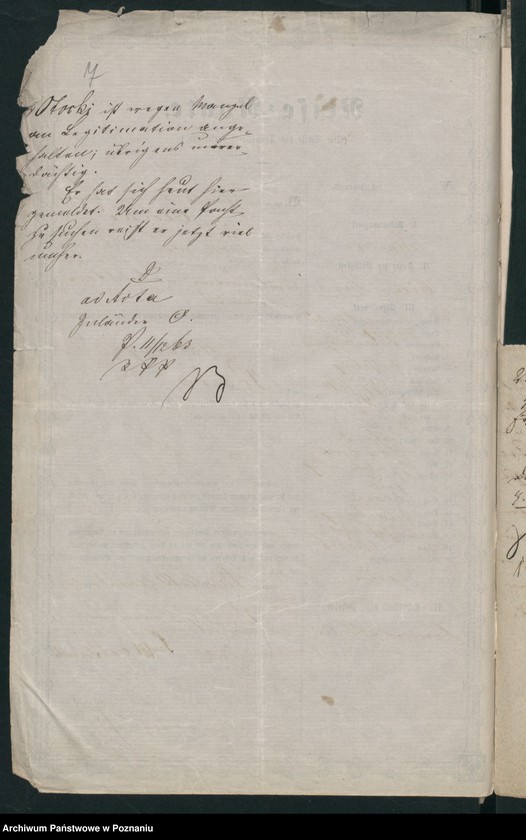 7
Otocki ist wegen Mangel
an Legitimation ange-
halten; übrigens unver-
dächtig.
Er hat sich heut hier
gemeldet. Um eine Pacht
zu suchen reist er jetzt viel
umher.
ad Acta
Inländer O.
P. 11/12 63
Archiwum Państwowe w Poznaniu